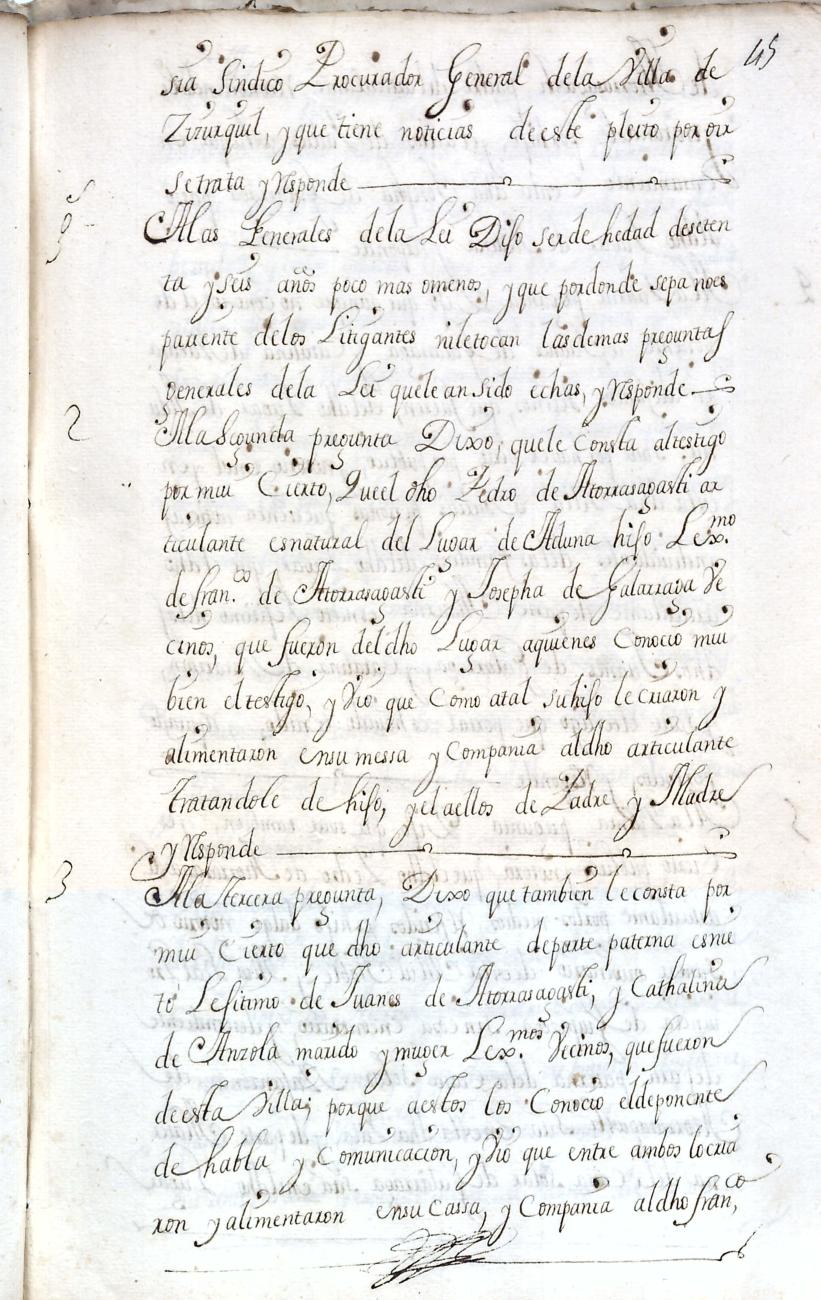 45
sia Sindico Procurador General dela Villa de
Zizurquil, y que tiene noticias de este pleito por oir
se trata y Rsponde
A las Generales dela Lei Dijo ser de hedad deseten
ta y seis años poco mas omenos, y que pordonde sepa noes
pariente delos Litigantes niletocan lasdemas preguntas
generales dela Lei quelean sido echas, y Rsponde
2
Ala Segunda pregunta Dixo, quele Consta altestigo
por mui Cierto, Queel dho Pedro de Atorrasagasti ar
ticulante esnatural del Lugar de Aduna hijo Lex.mo
de fran.co de Atorrasagasti y Josepha de Galarraga Ve
cinos, que fueron deldho Lugar aquienes Conocio mui
bien eltestigo, y Vio que Como atal suhijo lecriaron y
alimentaron ensu messa y Compania aldho articulante
tratandole de hijo, y el aellos de Padre y Madre
y Rsponde
3
Ala tercera pregunta, Dixo que tambien leconsta por
mui Cierto que dho articulante departe paterna esnie
to Lejitimo de Juanes de Atorrasagasti, y Cathalina
de Anzola marido y muger Lex.mos Vecinos, quefueron
deesta Villa; porque aestos los Conocio eldeponente
de habla y Comunicacion, y Vio que entre ambos locria
ron y alimentaron ensu Cassa, y Compania aldho fran.co